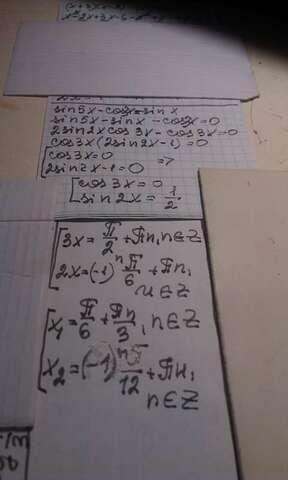 sin5x - cos3x = sin x
sin5x - sin x - cos3x = 0
2sin2x cos 3x - cos3x = 0
cos3x(2sin2x - 1) = 0
[cos3x = 0
2sin2x - 1 = 0 =>
[cos 3x = 0
sin 2x = 1/2
[3x = π/2 + πn, n∈Z
2x = (-1)^n π/6 + πn,
n∈Z
[x₁ = π/6 + πn/3, n∈Z
x₂ = (-1)^n π/12 + πn,
n∈Z